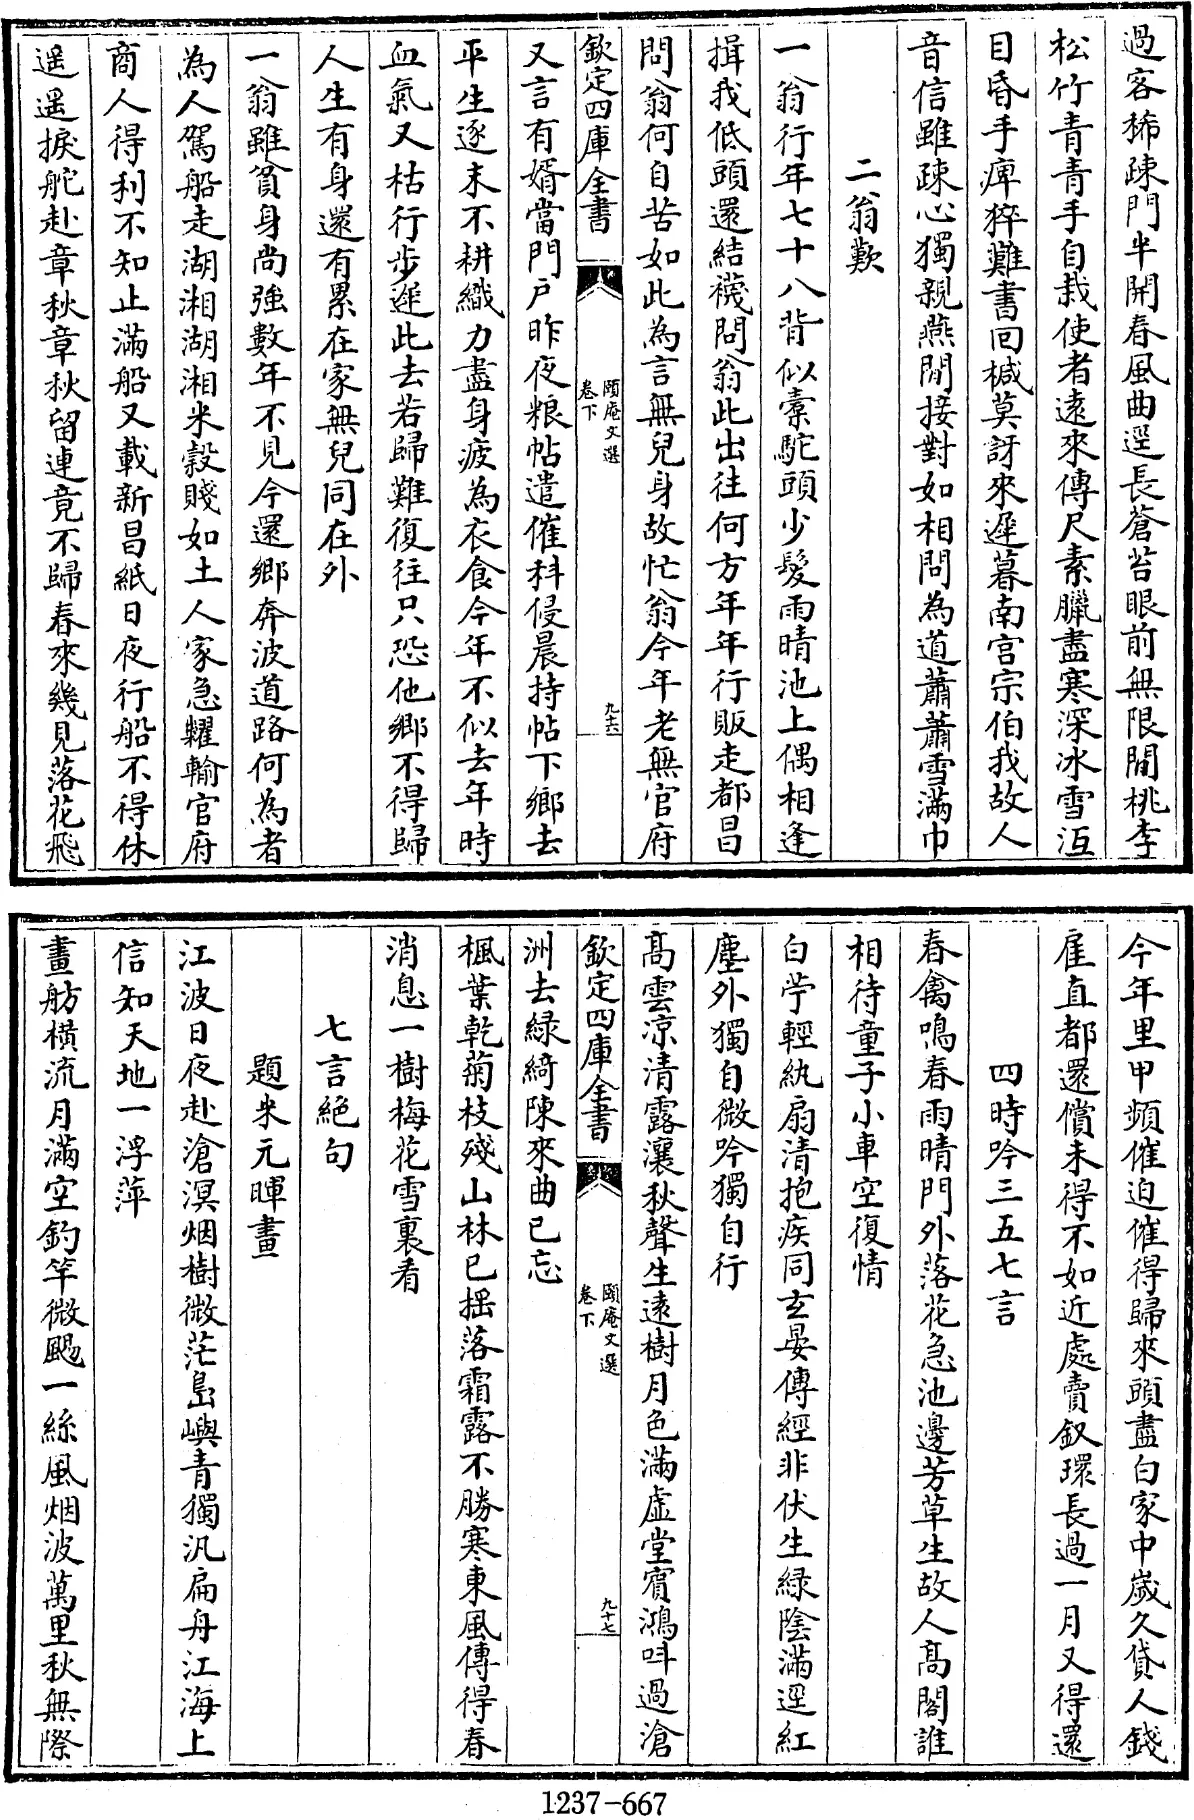 過客稀疎門半開春風曲逕長蒼苔眼前無限閒桃李
松竹青青手自栽使者遠來傳尺素臘盡寒深冰雪沍
目昏手痺猝難書回椷莫訝來遲暮南宫宗伯我故人
音信雖疎心獨親燕閒接對如相問為道蕭蕭雪滿巾
二翁歎
一翁行年七十八背似槖駝頭少髮雨晴池上偶相逢
揖我低頭還結襪問翁此出往何方年年行販走都昌
問翁何自苦如此為言無兒身故忙翁今年老無官府
欽定四庫全書
頤庵文選
卷下
九十六
又言有婿當門戸昨夜粮帖遣催科侵晨持帖下鄉去
平生逐末不耕織力盡身疲為衣食今年不似去年時
血氣又枯行步遲此去若歸難復往只恐他鄉不得歸
人生有身還有累在家無兒同在外
一翁雖貧身尚強數年不見今還鄉奔波道路何為者
為人駕船走湖湘湖湘米穀賤如土人家急糶輸官府
商人得利不知止滿船又載新昌紙日夜行船不得休
遥遥捩舵赴章秋章秋留連竟不歸春來幾見落花飛
今年里甲頻催迫催得歸來頭盡白家中嵗久貸人錢
雇直都還償未得不如近處賣釵環長過一月又得還
四時吟三五七言
春禽鳴春雨晴門外落花急池邊芳草生故人髙閣誰
相待童子小車空復情
白苧輕紈扇清抱疾同玄晏傳經非伏生緑陰滿逕紅
塵外獨自微吟獨自行
髙雲凉清露瀼秋聲生遠樹月色滿虚堂賓鴻呌過滄
欽定四庫全書
頤庵文選
卷下
九十七
洲去緑綺陳來曲已忘
楓葉乾菊枝殘山林已揺落霜露不勝寒東風傳得春
消息一樹梅花雪裏看
七言絶句
題米元暉畫
江波日夜赴滄溟烟樹微茫島嶼青獨汎扁舟江海上
信知天地一浮萍
畫舫横流月滿空釣竿微颺一絲風烟波萬里秋無際
1237-667